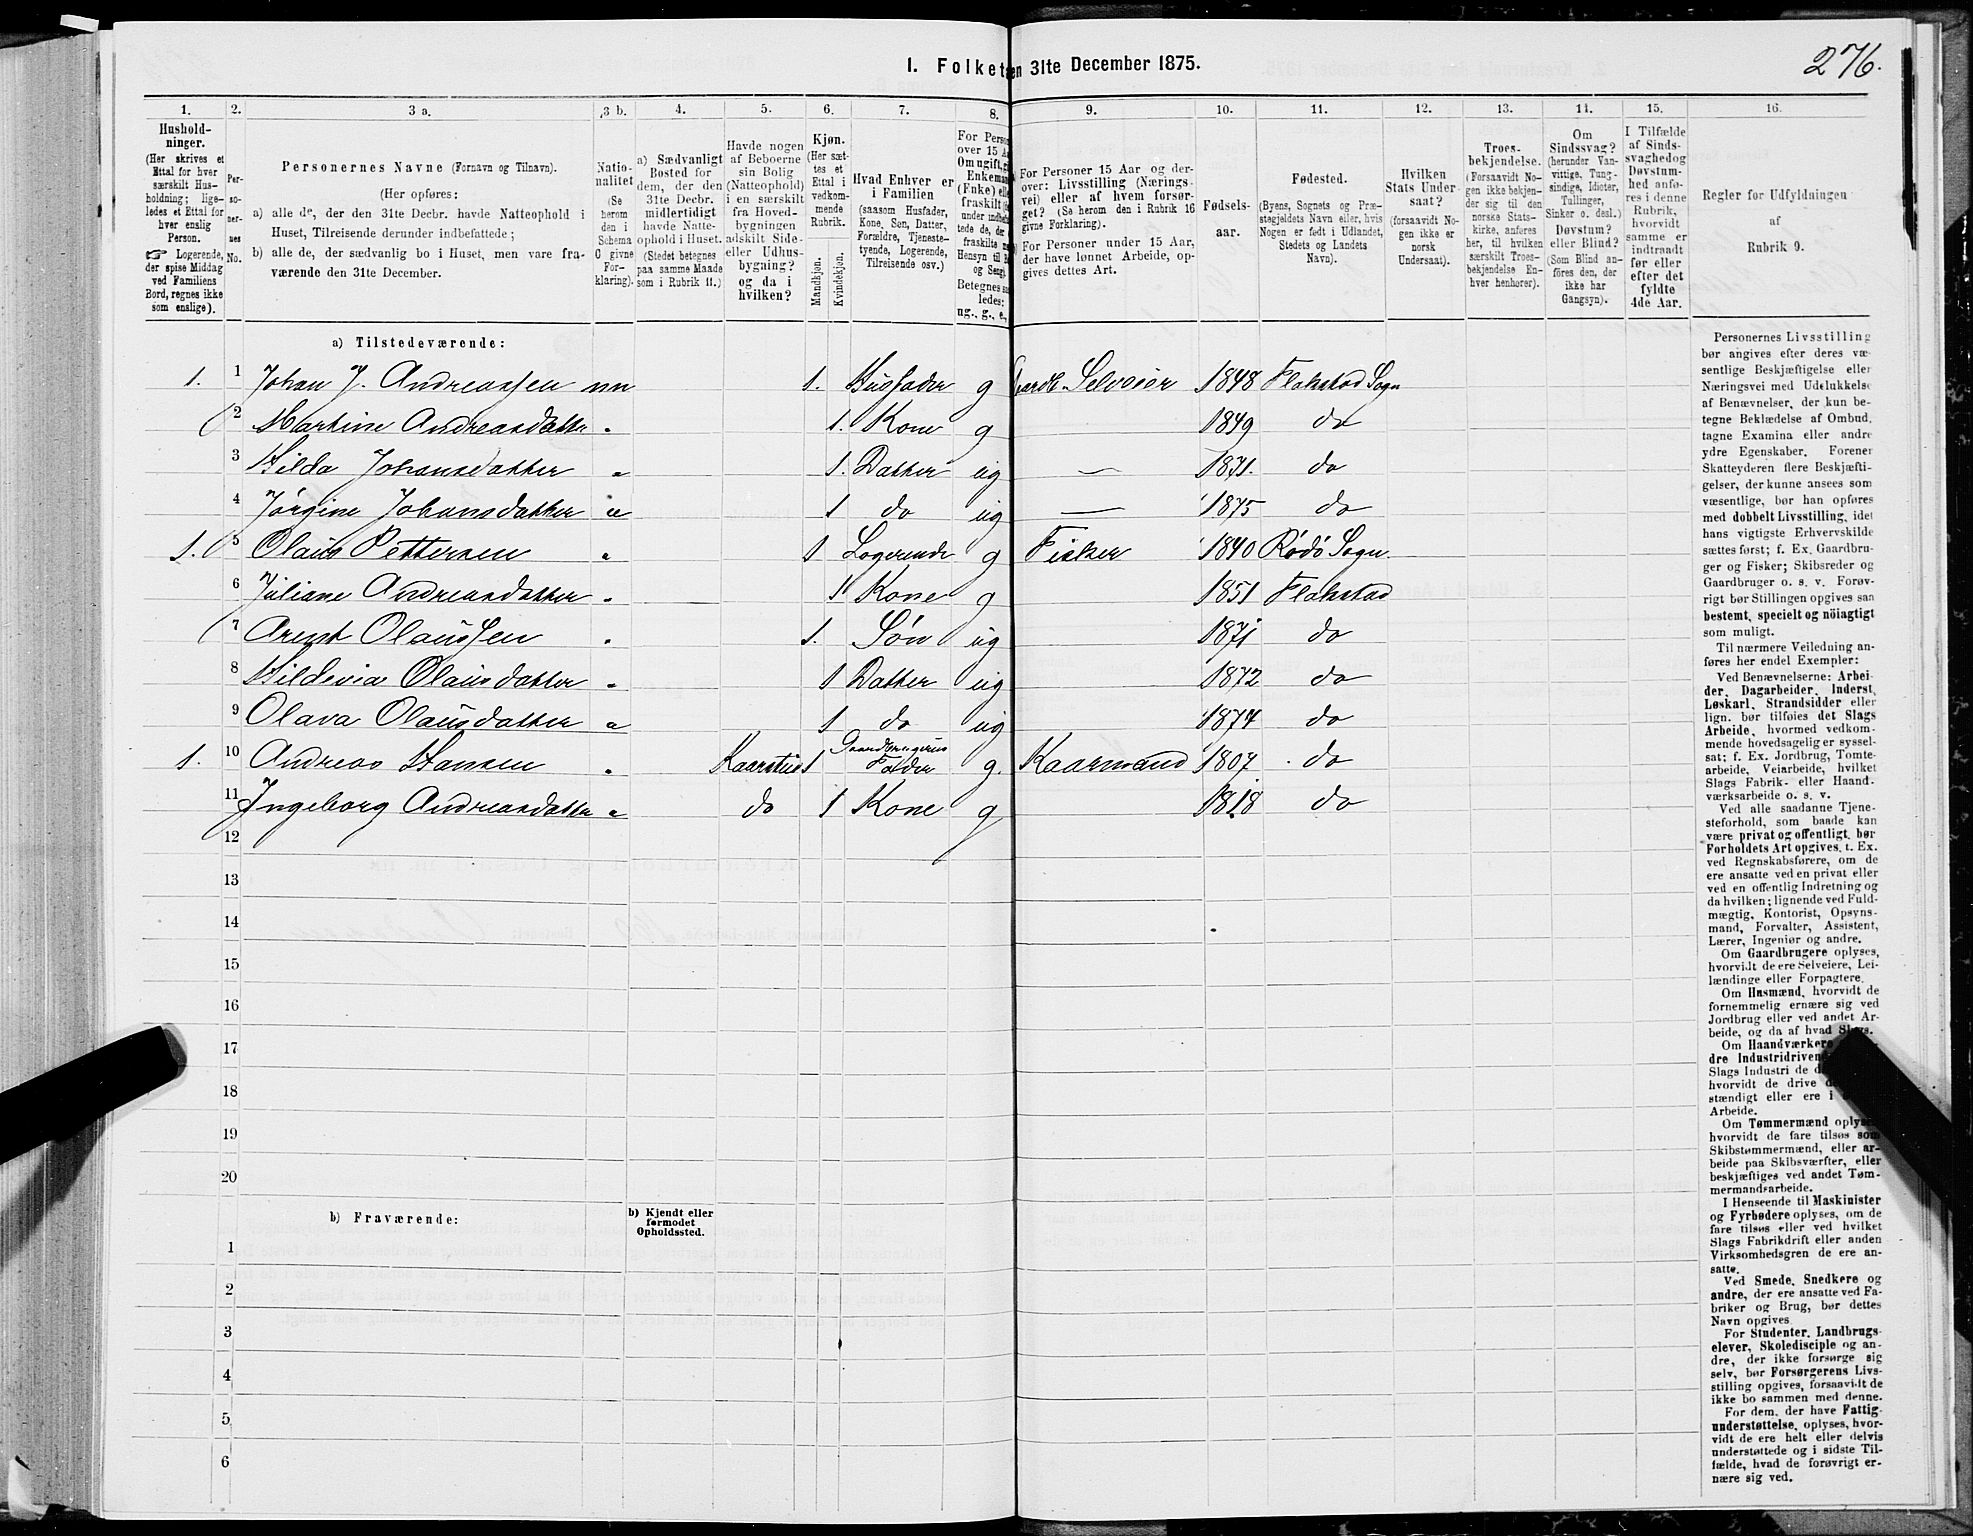 1. Folket    en 31te December 1875.
276.
1. 2. 3 a. 3 b. 4. 5. 6. 7. 8. 9. 10. 11. 12. 13. 14. 15. 16.
Hushold-
ninger.
(Her skrives et
Ettal for hver
særskilt Hus-
holdning; lige-
ledes et Ettal for
hver enslig
Person.
☞ Logerende,
der spise Middag
ved Familiens
Bord, regnes ikke
som enslige).
Per-
so-
ner-
nes
No.
Personernes Navne (Fornavn og Tilnavn).
(Her opføres:
a) alle de, der den 31te Decbr. havde Natteophold i
Huset, Tilreisende derunder indbefattede;
b) alle de, der sædvanlig bo i Huset, men vare fra-
værende den 31te December.
Natio-
nalitet
(Se
herom
den i
Schema
C givne
For-
klaring).
a) Sædvanligt
Bosted for
dem, der den
31te Decbr.
midlertidigt
havde Natte-
ophold i Huset.
(Stedet betegnes
paa samme Maade
som i Rubrik 11.)
Havde nogen
af Beboerne
sin Bolig
(Natteophold)
i en særskilt
fra Hoved-
bygningen
adskilt Side-
eller Udhus-
bygning?
og da i
hvilken?
Kjøn.
(Her sæt-
tes et
Ettal i
vedkom-
mende
Rubrik.
Mandkjøn.
Kvindekjøn.
Hvad Enhver er
i Familien
(saasom Husfader,
Kone, Søn, Datter,
Forældre, Tjeneste-
tyende, Logerende,
Tilreisende osv.)
For Perso
over 15 A
Om ugift, gi
Enkeman
(Enke) elle
fraskilt
under indbefa
tede de, der
fraskilte
Hensyn til B
og Seng).
Betegnes sa
ledes:
ug., g., e.,
For Personer 15 Aar og der-
over: Livsstilling (Nærings-
vei) eller af hvem forsør-
get? (Se herom den i Rubrik 16
givne Forklaring).
For Personer under 15 Aar,
der have lønnet Arbeide, op-
gives dettes Art.
Fødsels-
aar.
Fødested.
(Byens, Sognets og Præ-
stegjeldets Navn eller, hvis
Nogen er født i Udlandet,
Stedets og Landets
Navn).
Hvilken
Stats Under-
saat?
(forsaavidt No-
gen ikke er
norsk
Undersaat).
Troes-
bekjendelse.
(Forsaavidt No-
gen ikke bekjen-
der sig til den
norske Stats-
kirke, anføres
her, til hvilken
særskilt Troes-
bekjendelse En-
hver henhører).
Om
Sindssvag?
(herunder Van-
vittige, Tung-
sindige, Idioter,
Tullinger,
Sinker o. desl.)
Døvstum?
eller Blind?
(Som Blind an-
føres den, der
ikke har
Gangsyn).
I Tilfælde
af Sinds-
svaghed og
Døvstum-
hed anfø-
res i denne
Rubrik,
hvorvidt
samme er
indtraadt
før eller
efter det
fyldte
4de Aar.
Regler for Udfyldningen
af
Rubrik 9.
a) Tilstedeværende:
1. 1 Johan J. Andreassen nn 1. Husfader g Gaardb. Selveier 1848 Flakstad Sogn
2 Martine Andreasdatter " 1. Kone g 1849 do
3 Hilda Johansdatter " 1. Datter ug — 1871. do
4 Jørgine Johansdatter " 1 do ug — 1875 do
1. 5 Olaus Pettersen " 1 Logerende g Fisker 1840 Rødø Sogn
6 Juliane Andreasdatter " 1 Kone g 1851 Flakstad
7 Arent Olaussen " 1. Søn ug 1871 do
8 Hildevia Olausdatter " 1 Datter ug 1872 do
9 Olava Olausdatter " 1 do ug 1874 do
1. 10 Andreas Hansen " Kaarstue 1 Gaardbrugerens Fader g. Kaarmand 1807 do
11 Ingeborg Andreasdatter " do 1 Kone g 1818 do
12
13
14
15
16
17
18
19
20
b) Fraværende:
b) Kjendt eller
formodet
Opholdssted.
1
2
3
4
5
6
Personernes Livsstilling
bør angives efter deres væ-
sentlige Beskjæftigelse eller
Næringsvei med Udelukkelse
af Benævnelser, der kun be-
tegne Beklædelse af Ombud,
tagne Examina eller andre
ydre Egenskaber. Forener
Skatteyderen flere Beskjæfti-
gelser, der kunne ansees som
væsentlige, bør han opføres
med dobbelt Livsstilling, idet
hans vigtigste Erhvervskilde
sættes først; f. Ex. Gaardbru-
ger og Fisker; Skibsreder og
Gaardbruger o. s. v. Forøv-
rigt bør Stillingen opgives saa
bestemt, specielt og nöiagtigt
som muligt.
Til nærmere Veiledning an-
føres her endel Exempler:
Ved Benævnelserne: Arbei-
der, Dagarbeider, Inderst,
Løskarl, Strandsidder eller
lign. bør tilføies det Slags
Arbeide, hvormed vedkom-
mende hovedsagelig er syssel-
sat; f. Ex. Jordbrug, Tomte-
arbeide, Veiarbeide, hvilket
Slags Fabrik- eller Haand-
værksarbeide o. s. v.
Ved alle saadanne Tjene-
steforhold, som baade kan
være privat og offentligt, bør
Forholdets Art opgives, t. Ex.
ved Regnskabsførere, om de
ere ansatte ved en privat eller
ved en offentlig Indretning og
da hvilken; lignende ved Fuld-
mægtig, Kontorist, Opsyns-
mand, Forvalter, Assistent,
Lærer, Ingeniør og andre.
Om Gaardbrugere oplyses,
hvorvidt de ere Selveiere, Lei-
lændinge eller Forpagtere.
Om Husmænd, hvorvidt de
fornemmelig ernære sig ved
Jordbrug eller ved andet Ar-
beide, og da af hvad Slags.
Om Haandværkere
dre Industridriven
Slags Industri de d
hvorvidt de drive d
stændigt eller ere i
Arbeide.
Om Tømmermænd oplyses
hvorvidt de fare tilsøs som
Skibstømmermænd, eller ar-
beide paa Skibsværfter, eller
beskjæftiges ved andet Tøm-
mermandsarbeide.
I Henseende til Maskinister
og Fyrbødere oplyses, om de
fare tilsøs eller ved hvilket
Slags Fabrikdrift eller anden
Virksomhedsgren de ere an-
satte.
Ved Smede, Snedkere og
andre, der ere ansatte ved Fa-
briker og Brug, bør dettes
Navn opgives
For Studenter, Landbrugs-
elever, Skoledisciple og an-
dre, der ikke forsørge sig
selv, bør Forsørgerens Livs-
stilling opgives, forsaavidt de
ikke bo sammen med denne.
For dem, der have Fattig-
understøttelse, oplyses, hvor-
vidt de ere helt eller delvis
understøttede og i sidste Til-
fælde, hvad de forøvrigt er-
nære sig ved.